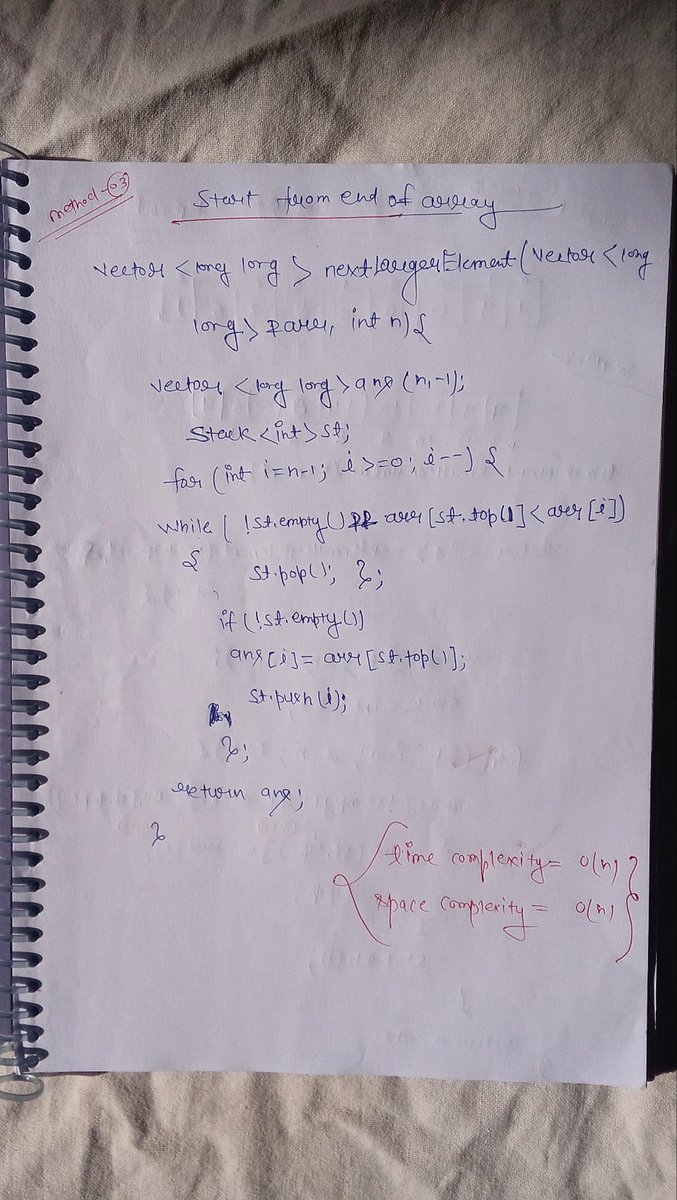 method-03
Start from end of array
vector <long long > nextLargerElement(vector <long
long> &arr, int n){
vector <long long> ans (n,-1);
Stack <int> st;
for (int i=n-1; i>=0; i--) {
while ( !st.empty() && arr[st.top()] < arr[i])
{ st.pop(); };
if (!st.empty())
ans[i]= arr[st.top()];
st.push(i);
};
return ans;
}
time complexity= O(n)
space complexity = O(n)